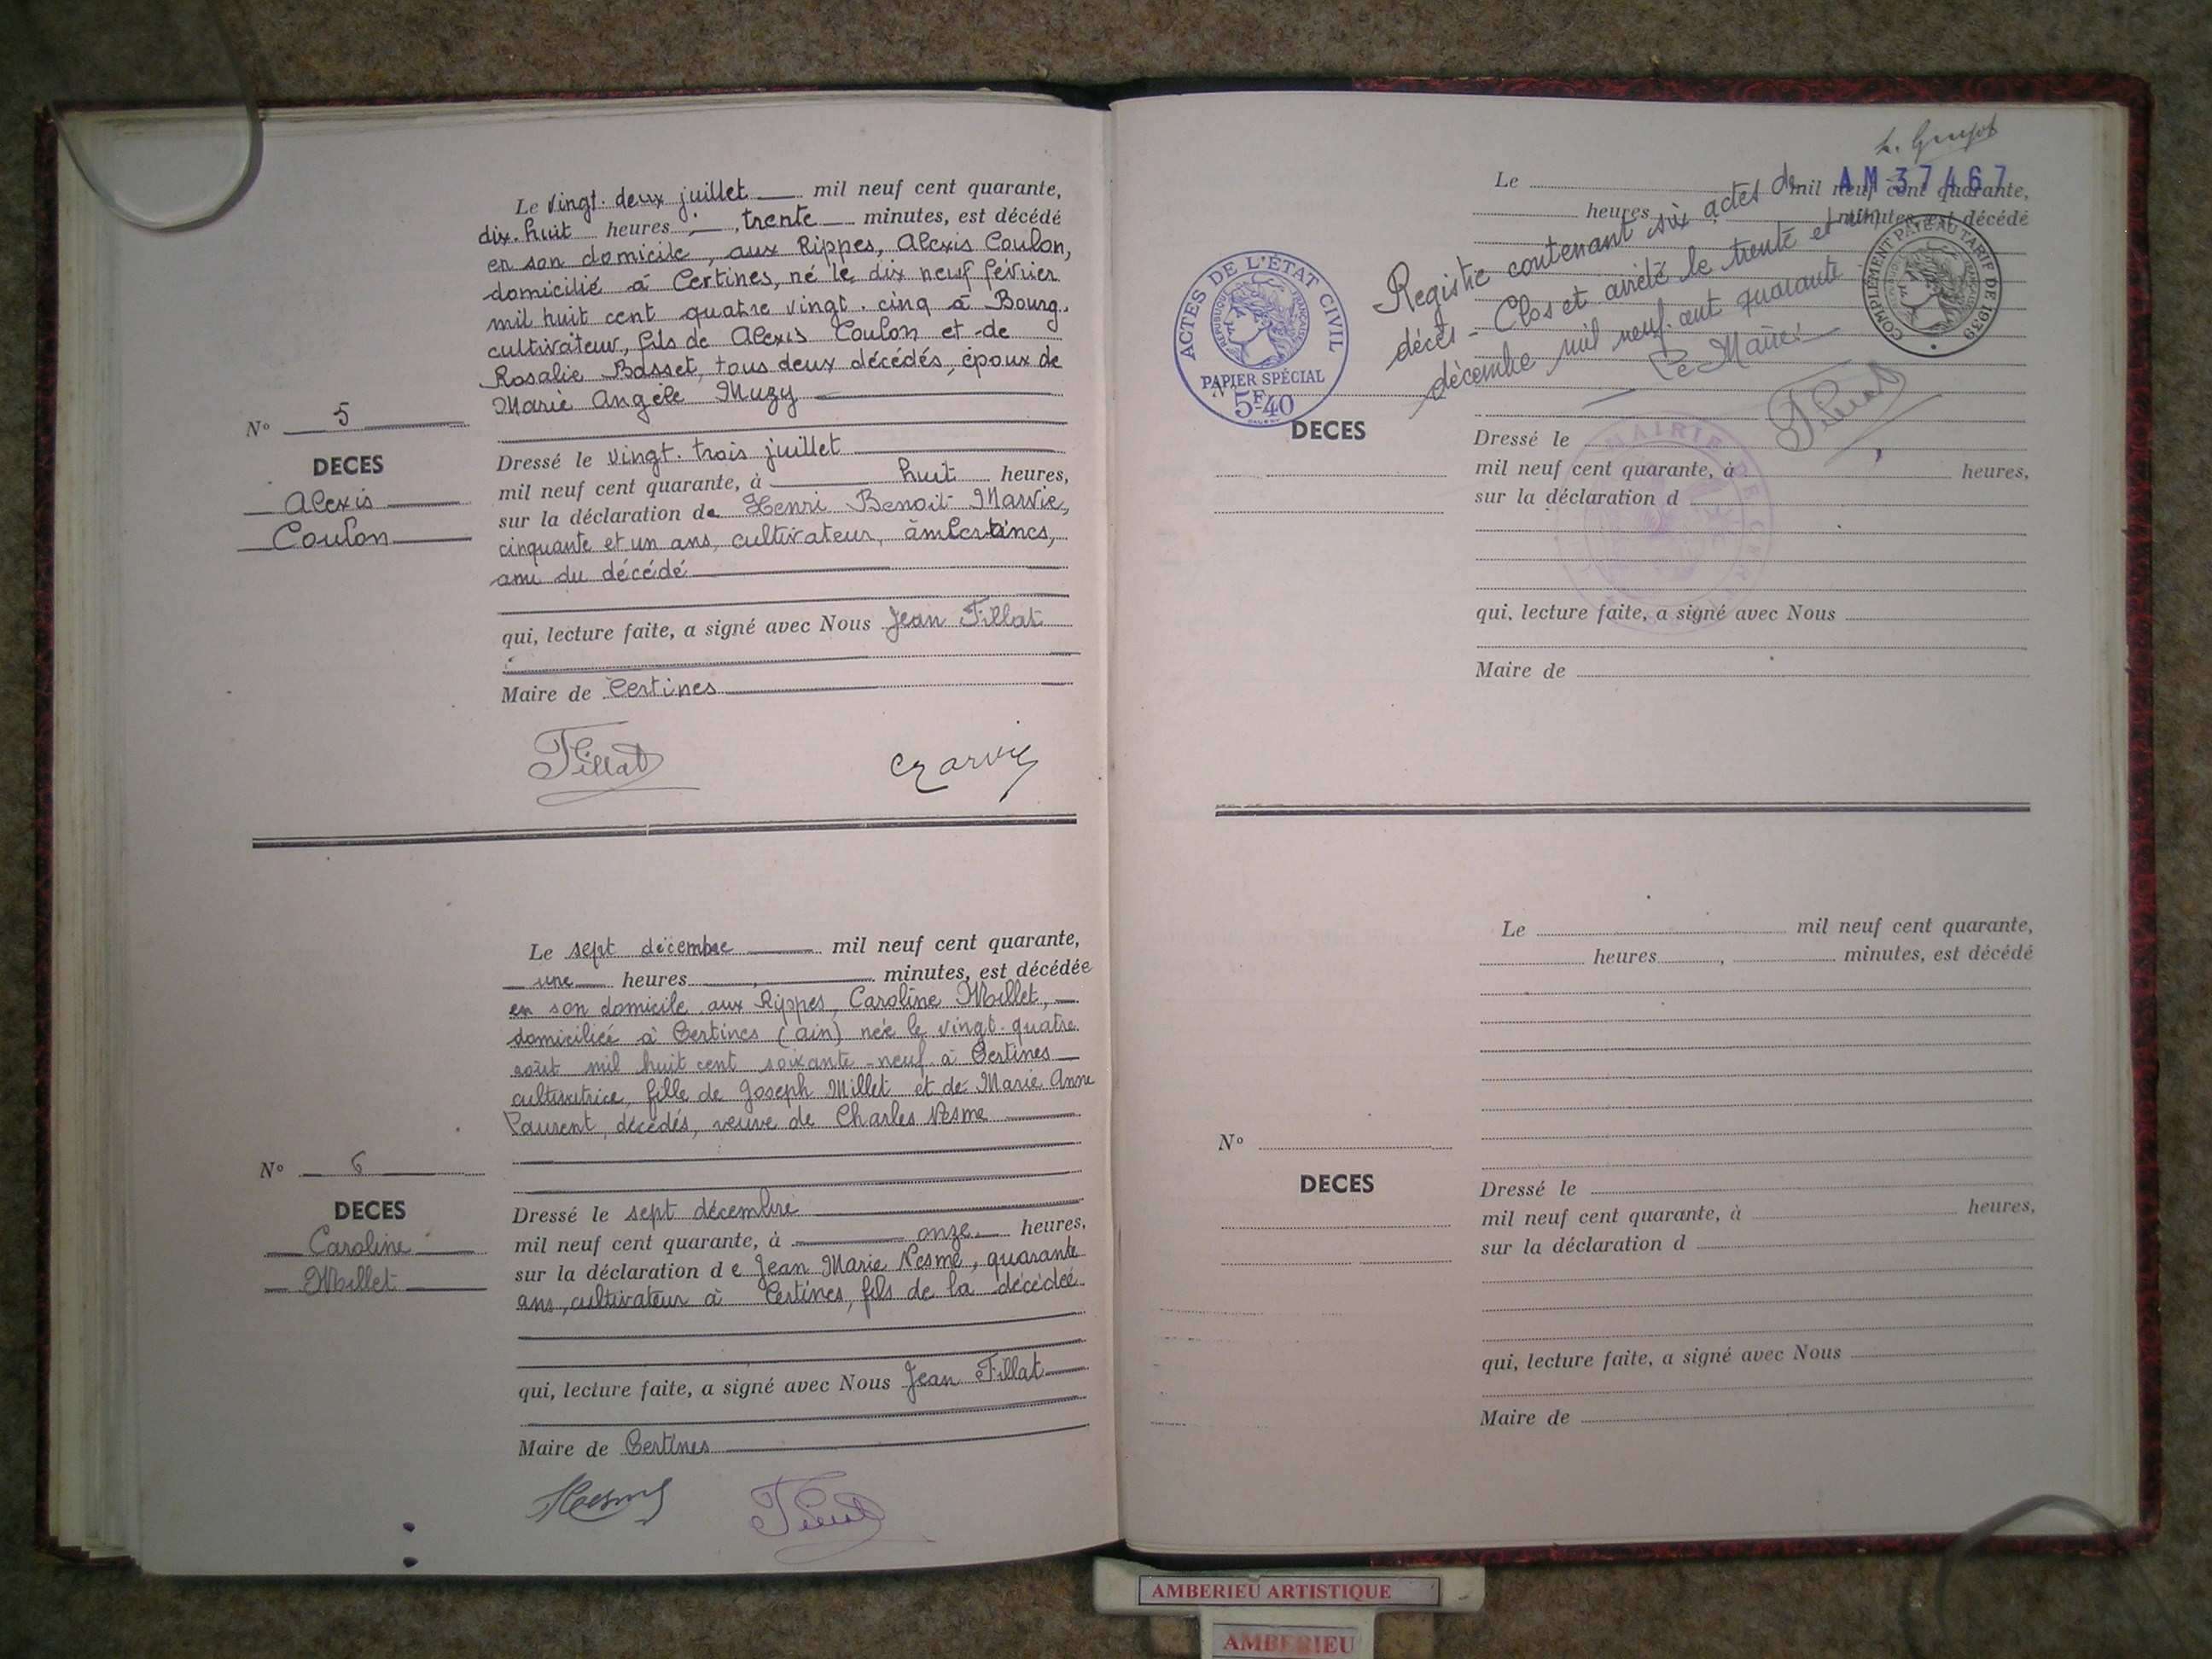 Le vingt. deux juillet mil neuf cent quarante,
dix. huit heures , trente minutes, est décédé
en son domicile, aux Rippes, Alexis Coulon,
domicilié à Certines, né le dix neuf février
mil huit cent quatre vingt. cinq à Bourg,
cultivateur, fils de Alexis Coulon et de
Rosalie Basset, tous deux décédés, époux de
Marie Angèle Muzy
N° 5
DECES
Alexis
Coulon
Dressé le vingt. trois juillet
mil neuf cent quarante, à huit heures,
sur la déclaration de Henri Benoit Marvie,
cinquante et un ans, cultivateur, à Certines,
ami du décédé
qui, lecture faite, a signé avec Nous Jean Tillat
Maire de Certines
Tillat
Le sept décembre mil neuf cent quarante,
une heures , minutes, est décédée
en son domicile aux Rippes, Caroline Millet,
domiciliée à Certines (ain) née le vingt. quatre
août mil huit cent soixante-neuf à Certines
cultivatrice, fille de Joseph Millet et de Marie Anne
Laurent, décédés, veuve de Charles Nesme
N° 6
DECES
Caroline
Millet
Dressé le sept décembre
mil neuf cent quarante, à onze heures,
sur la déclaration de Jean Marie Nesme, quarante
ans, cultivateur à Certines, fils de la décédée
qui, lecture faite, a signé avec Nous Jean Tillat
Maire de Certines
Nesme Tillat
AM 37467
Le mil neuf cent quarante,
heures minutes, est décédé
Registre contenant six actes de
décès - Clos et arrêté le trente et un
décembre mil neuf cent quarante
Le Maire:
Tillat
ACTES DE L'ÉTAT CIVIL
RÉPUBLIQUE FRANÇAISE
PAPIER SPÉCIAL
5F40
COMPLÉMENT PAYÉ AU TARIF DE 1939
MAIRIE DE
DECES
Dressé le
mil neuf cent quarante, à heures,
sur la déclaration d
qui, lecture faite, a signé avec Nous
Maire de
Le mil neuf cent quarante,
heures , minutes, est décédé
N°
DECES
Dressé le
mil neuf cent quarante, à heures,
sur la déclaration d
qui, lecture faite, a signé avec Nous
Maire de
AMBERIEU ARTISTIQUE
AMBERIEU